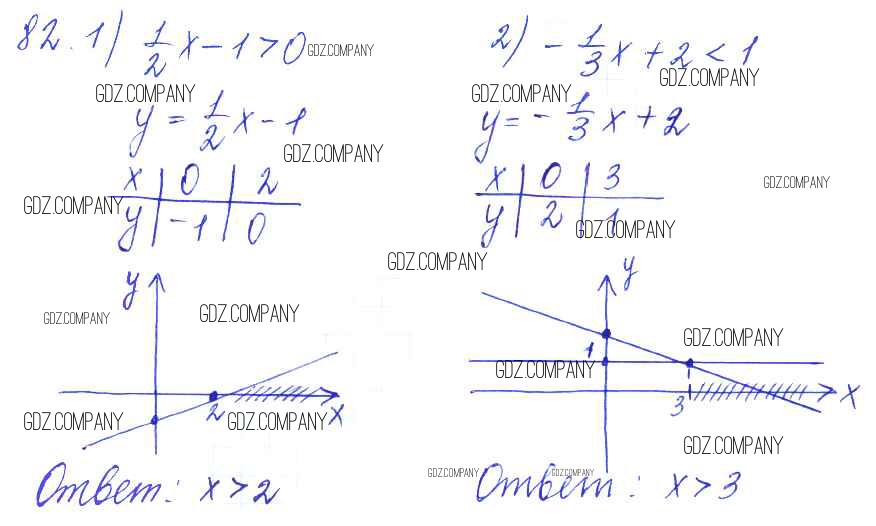 82. 1) 1/2 x - 1 > 0 GDZ.COMPANY
GDZ.COMPANY
y = 1/2 x - 1
GDZ.COMPANY
x | 0 | 2
GDZ.COMPANY
y | -1 | 0
y
GDZ.COMPANY
GDZ.COMPANY
2
x
GDZ.COMPANY
GDZ.COMPANY
Ответ: x > 2
2) - 1/3 x + 2 < 1
GDZ.COMPANY
GDZ.COMPANY
y = - 1/3 x + 2
x | 0 | 3
GDZ.COMPANY
y | 2 | 1
GDZ.COMPANY
GDZ.COMPANY
y
GDZ.COMPANY
1
GDZ.COMPANY
3
x
GDZ.COMPANY
GDZ.COMPANY
GDZ.COMPANY
Ответ: x > 3